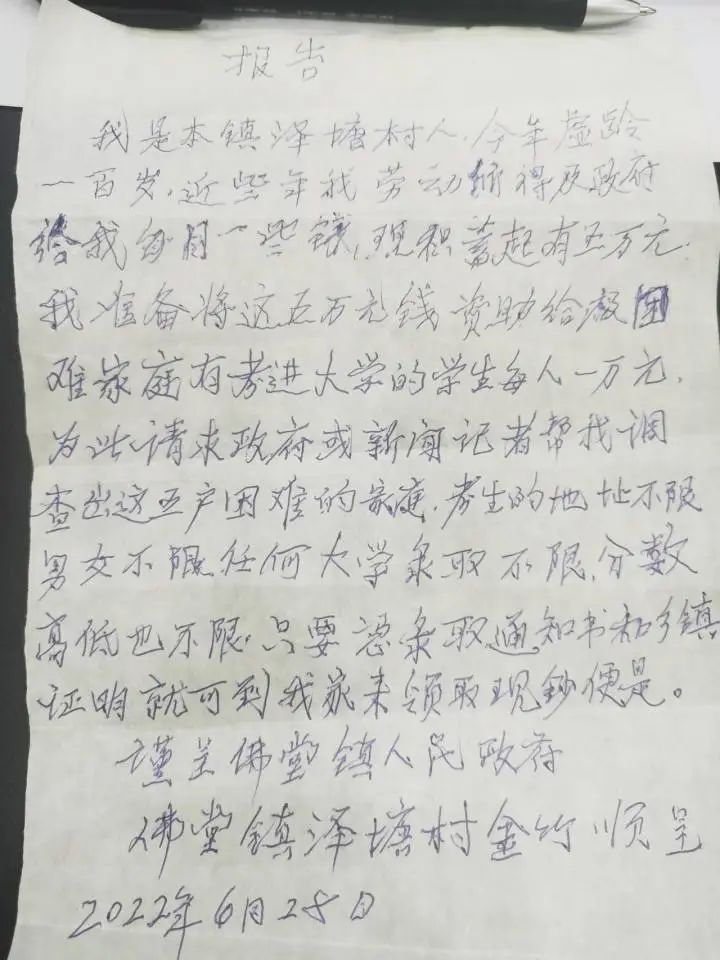 报告
我是本镇泽塘村人.今年虚龄
一百岁.近些年我劳动所得及政府
给我每月一些钱,现积蓄起有五万元.
我准备将这五万元钱资助给被困
难家庭有考进大学的学生每人一万元.
为此请求政府或新闻记者帮找调
查出这五户困难的家庭.考生的地址不限
男女不限任何大学录取不限.分数
高低也不限.只要凭录取通知书和乡镇
证明就可到我家来领取现钞便是。
谨呈佛堂镇人民政府
佛堂镇泽塘村金竹顺呈
2022年6月28日